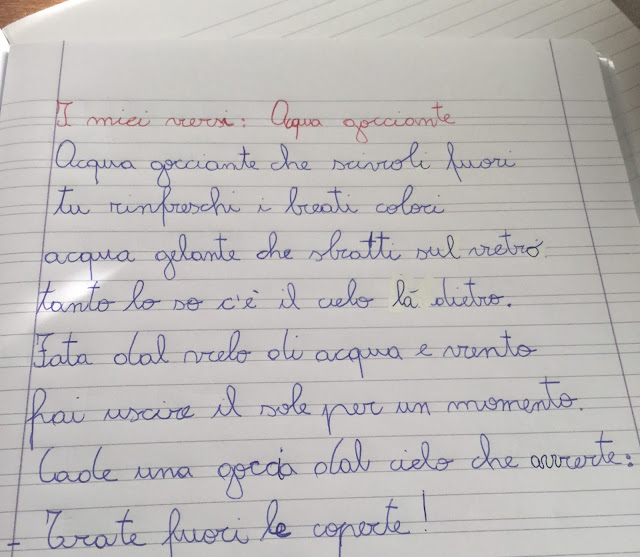 I miei versi: Acqua gocciante
Acqua gocciante che scivoli fuori
tu rinfreschi i beati colori
acqua gelante che sbatti sul vetro
tanto lo so c'è il cielo là dietro.
Fata dal velo di acqua e vento
fai uscire il sole per un momento.
Cade una goccia dal cielo che avverte:
- Tirate fuori le coperte!